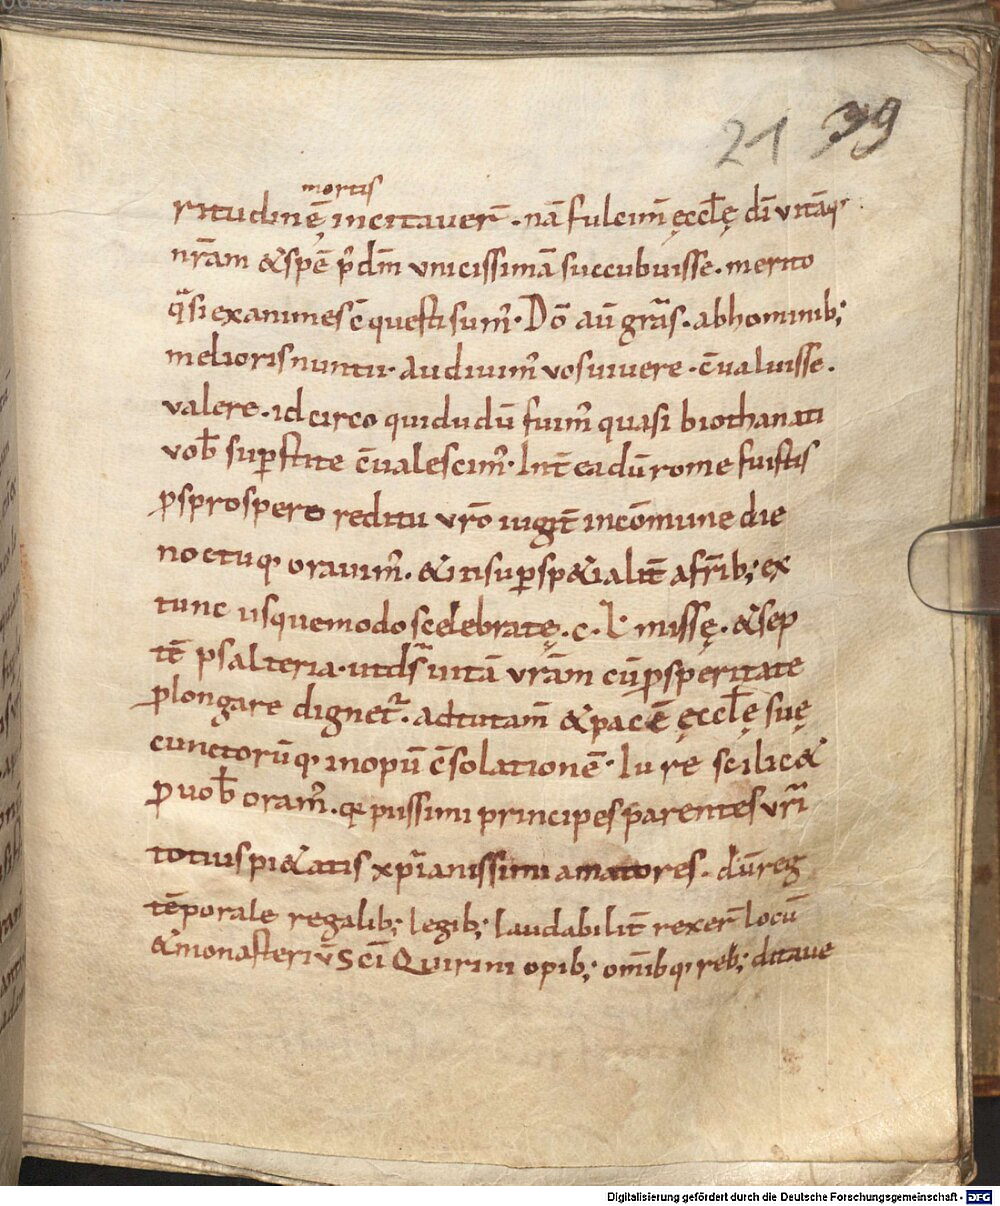 21 39
mortis
ritudinē incitauer̄ . nā fulcim̄ ęccl̄ę dī vitāq;
nr̄am & spē p̄ dm̄ vnicissimā succubuisse . merito
q̄si exanimes c̄questi sum᷒ . Dō aū gr̄as . ab hominib;
melioris nuntii . audiuim᷒ vos uiuere . c̄ualuisse .
valere . idcirco qui dudū fuim᷒ quasi biothanati
vob̄ sup̄stite c̄ualescim᷒ . Int̄ ea dū rome fuistis
ꝓ sprospero reditu vr̄o iugit̄ in cōmune die
noctuq; orauim᷒ . & insup̄ sp&ialit̄ a fr̄ib; ex
tunc usque modo scelebratę . c . L missę . & sep
tē psalteria . ut ds̄ uitā vr̄am cū ꝓsperitate
ꝓlongare dignet᷒ . ad tutam̄ & pacē ęccl̄ę suę
cunctorūq; inopū c̄solationē . Iure scilic&
ꝓ uob̄ oram᷒ . q; piissimi principes parentes vr̄i
totius pi&atis xp̄ianissimi amatores . dū reg
tēporale regalib; legib; laudabilit̄ rexer̄ locū
& monasteriū Sc̄i Quirini opib; om̄ibq; reb; ditaue
Digitalisierung gefördert durch die Deutsche Forschungsgemeinschaft - DFG